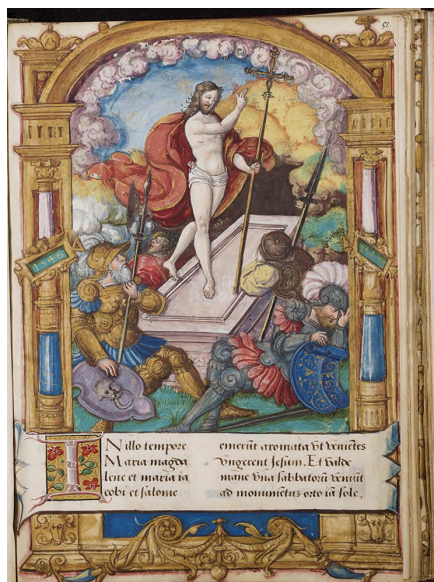 51.
1546
INillo tempore
Maria magda
lene et maria ia
cobi et salome
emerūt aromata vt veniētes
vngerent Jesum. Et valde
mane vna sabbatorū veniūt
ad orto iā sole.